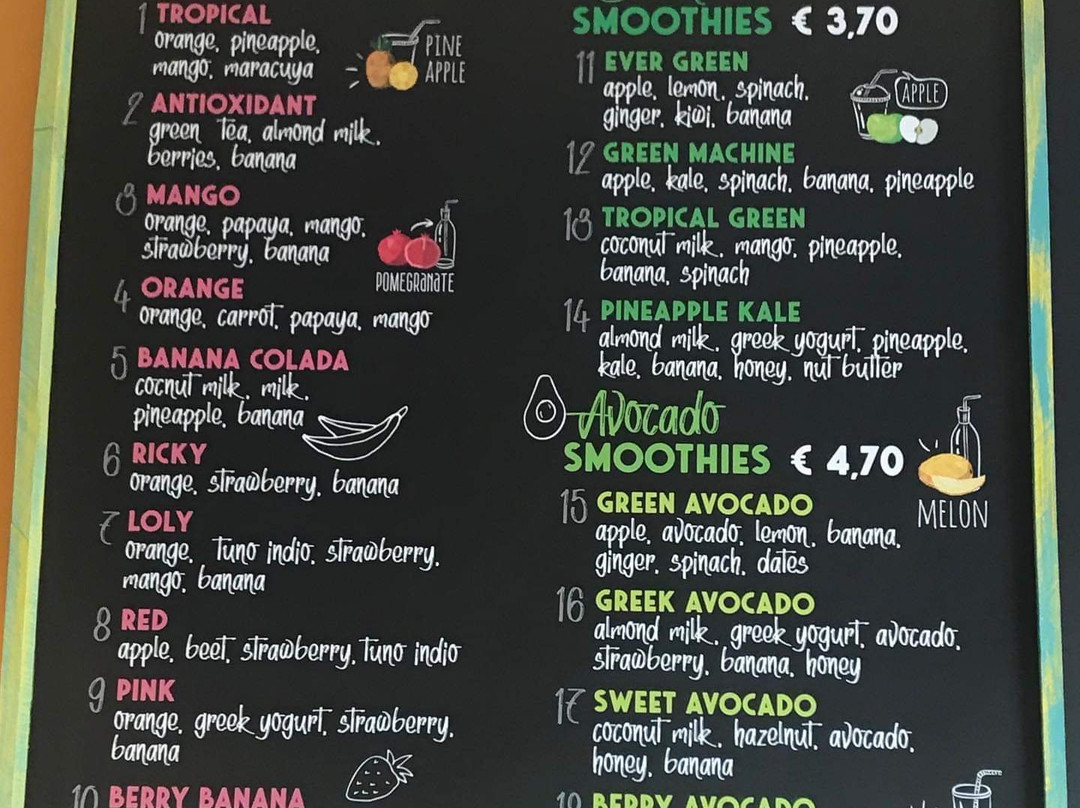 1 TROPICAL
orange, pineapple,
mango, maracuya
PINE
APPLE
2 ANTIOXIDANT
green tea, almond milk,
berries, banana
3 MANGO
orange, papaya, mango,
strawberry, banana
POMEGRANATE
4 ORANGE
orange, carrot, papaya, mango
5 BANANA COLADA
cocnut milk, milk,
pineapple, banana
6 RICKY
orange, strawberry, banana
7 LOLY
orange, tuno indio, strawberry,
mango, banana
8 RED
apple, beet, strawberry, tuno indio
9 PINK
orange, greek yogurt, strawberry,
banana
10 BERRY BANANA
SMOOTHIES € 3,70
11 EVER GREEN
apple, lemon, spinach,
ginger, kiwi, banana
APPLE
12 GREEN MACHINE
apple, kale, spinach, banana, pineapple
13 TROPICAL GREEN
coconut milk, mango, pineapple,
banana, spinach
14 PINEAPPLE KALE
almond milk, greek yogurt, pineapple,
kale, banana, honey, nut butter
Avocado
SMOOTHIES € 4,70
MELON
15 GREEN AVOCADO
apple, avocado, lemon, banana,
ginger, spinach, dates
16 GREEK AVOCADO
almond milk, greek yogurt, avocado,
strawberry, banana, honey
17 SWEET AVOCADO
coconut milk, hazelnut, avocado,
honey, banana
BERRY AVOCADO